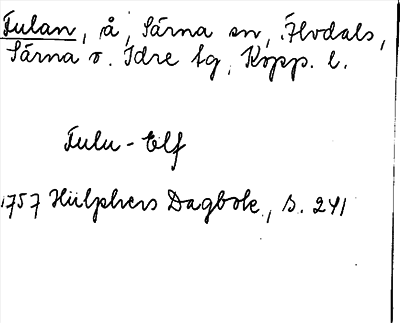 Fulan, å, Särna sn, Älvdals,
Särna o. Idre tg, Kopp. l.
Fulu-Elf
1757 Hülphers Dagbok, s. 241